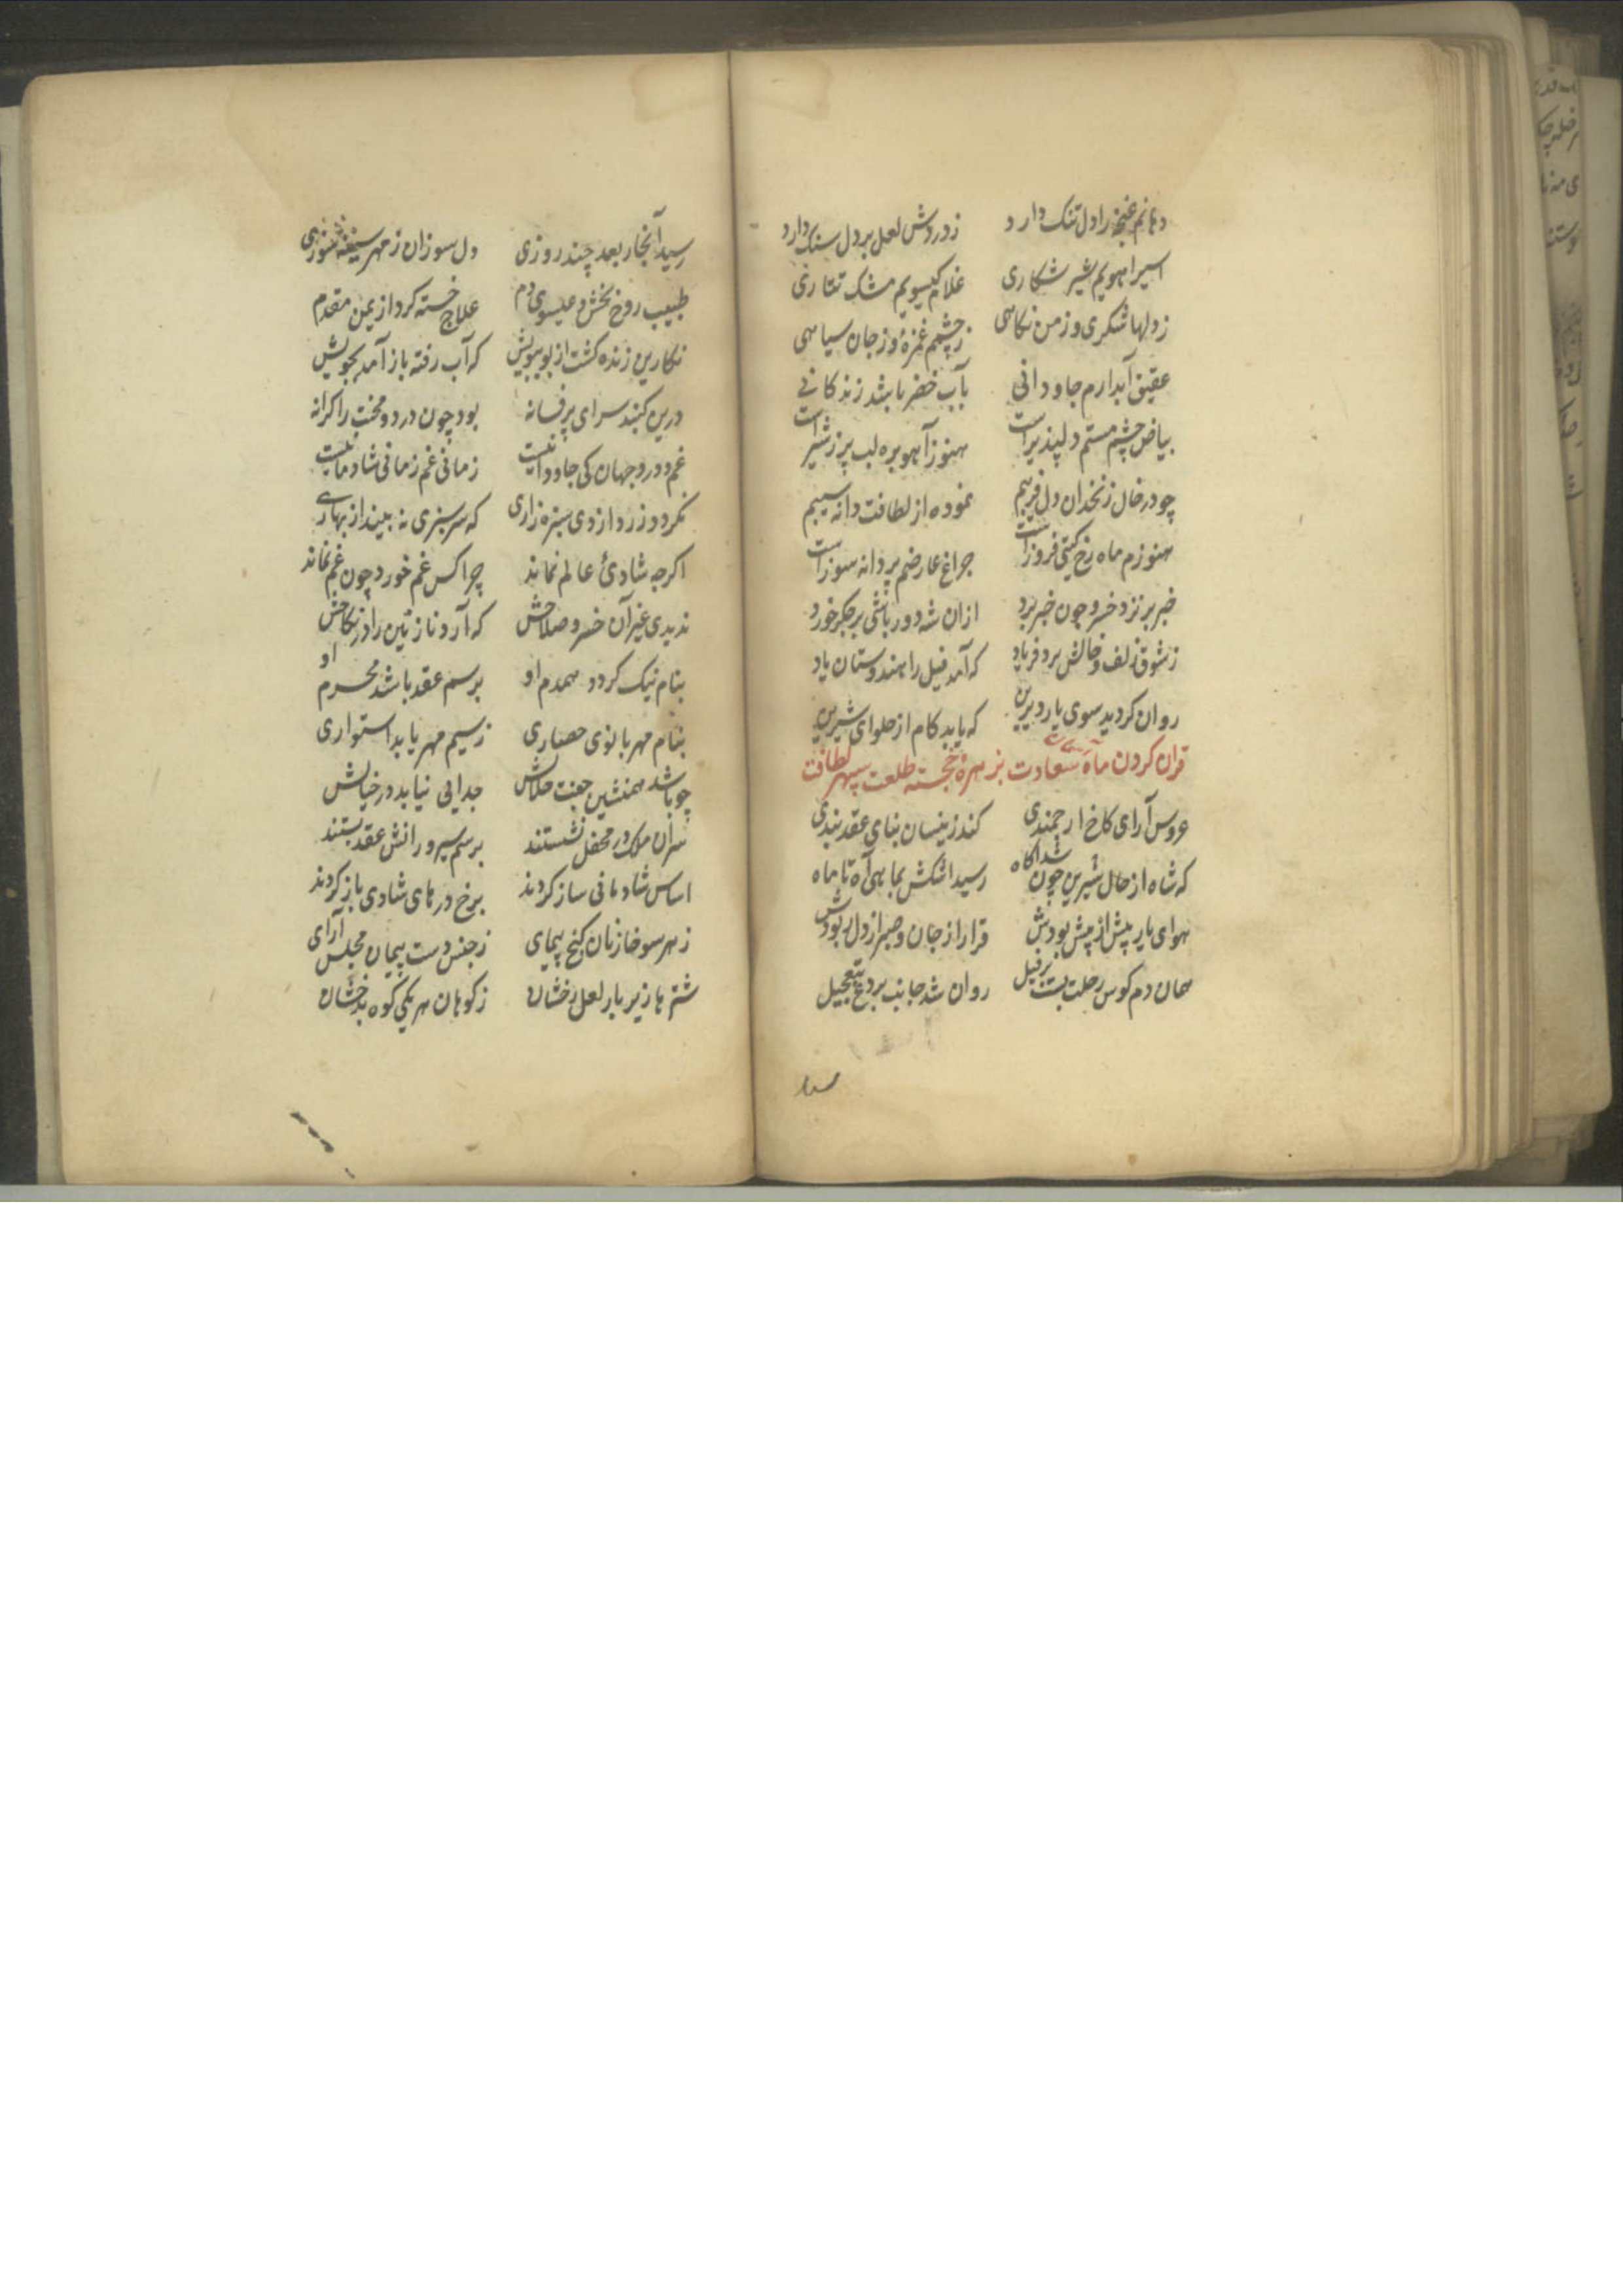 دهانم غنچه را دل تنک دارد زدردش لعل بر دل سنک دارد
اسیر اهویم شیر شکاری غلام کیسویم مشک تتاری
ز دلها شکری وز من نکاهی زچشمم غمزهٔ وز جان سپاهی
عقیق آبدارم جاودانی بآب خضر باشد زندکانی
بیاض چشم مستم دلپذیر است هنوز آهو بره لب پر ز شیر است
چو در خال زنخدان دل فریبم نموده از لطافت دانه سیبم
هنوزم ماه رخ کیتی فروز است چراغ عارضم پروانه سوز است
خبر بر نزد خسرو چون خبر برد ازان شه دور باشی بر جکر خورد
زشوق زلف و خالش برد فریاد که آمد فیل را هندوستان یاد
روان کردید سوی یار دیرین که یابد کام از حلوای شیرین
قران کردن ماه سعادت بزهرهٔ خجسته طلعت سپهر لطافت
عروس آرای کاخ ارجمندی کند زینسان بنای عقد بندی
که شاه از حال شیرین چون شد اکاه رسید اشکش بماهی آه تا ماه
هوای یار پیش از پیش بودش قرار از جان و صبر از دل ربودش
همان دم کوس رحلت بست بر فیل روان شد جانب بردع بتعجیل
رسید آنجا ر بعد چند روزی دل سوزان ز مهر سینه سوزی
طبیب روح بخش و عیسوی دم علاج خسته کرد از یمن مقدم
نکارین زنده کشت از بو ببویش که آب رفته باز آمد بجویش
درین کنبد سرای پر فسانه بود چون درد و محنت را کرانه
غم و درد جهان کی جاودانیست زمانی غم زمانی شادمانیست
نکردد زرد ازوی سبزه زاری که سرسبزی نه بیند از بهاری
اکرچه شادیٔ عالم نماند چرا کس غم خورد چون غم نماند
ندیدی غیر آن خسرو صلاحش که آرد نازنین را در نکاحش
بنام نیک کردد همدم او برسم عقد باشد محرم او
بنام مهر بانوی حصاری زسیم مهر یابد استواری
چو باشد همنشین جفت حلالش جدایی نیابد در خیالش
سران ملک در محفل نشستند برسم سرورانش عقد بستند
اساس شادمانی ساز کردند برخ درهای شادی باز کردند
زهر سو خازنان کنج پیمای زجنس دست پیمان مجلس آرای
شترها زیر بار لعل رخشان زکوهان هر یکی کوه بدخشان